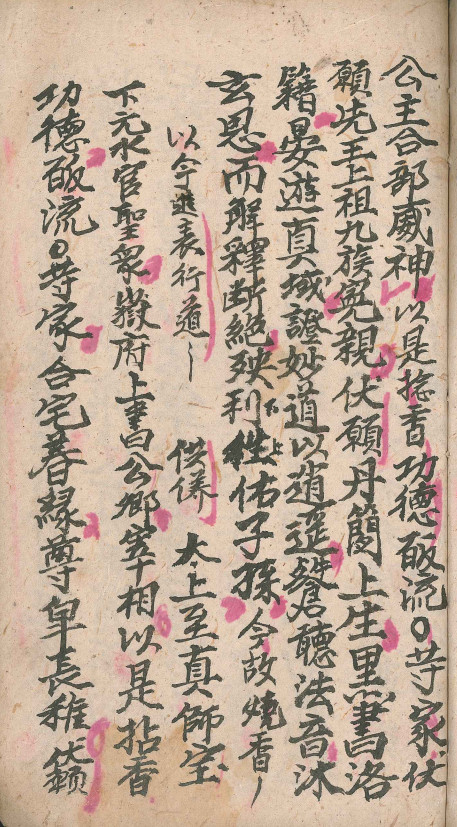 公主合部威神以是捻香功德皈流〇等家伏
願先王上祖九族寃親伏願丹簡上生黑書洛
籍晏遊真域證妙道以逍遥聽法音沐
玄恩而解釋断絶殃利下牲上佑子孫今故燒香〜
以今進表行道〜 供養 太上至真師宝
下元水官聖衆嶽府上書公鄉宰相以是拈香
功德皈流〇等家合宅眷緣尊卑長稚伏願